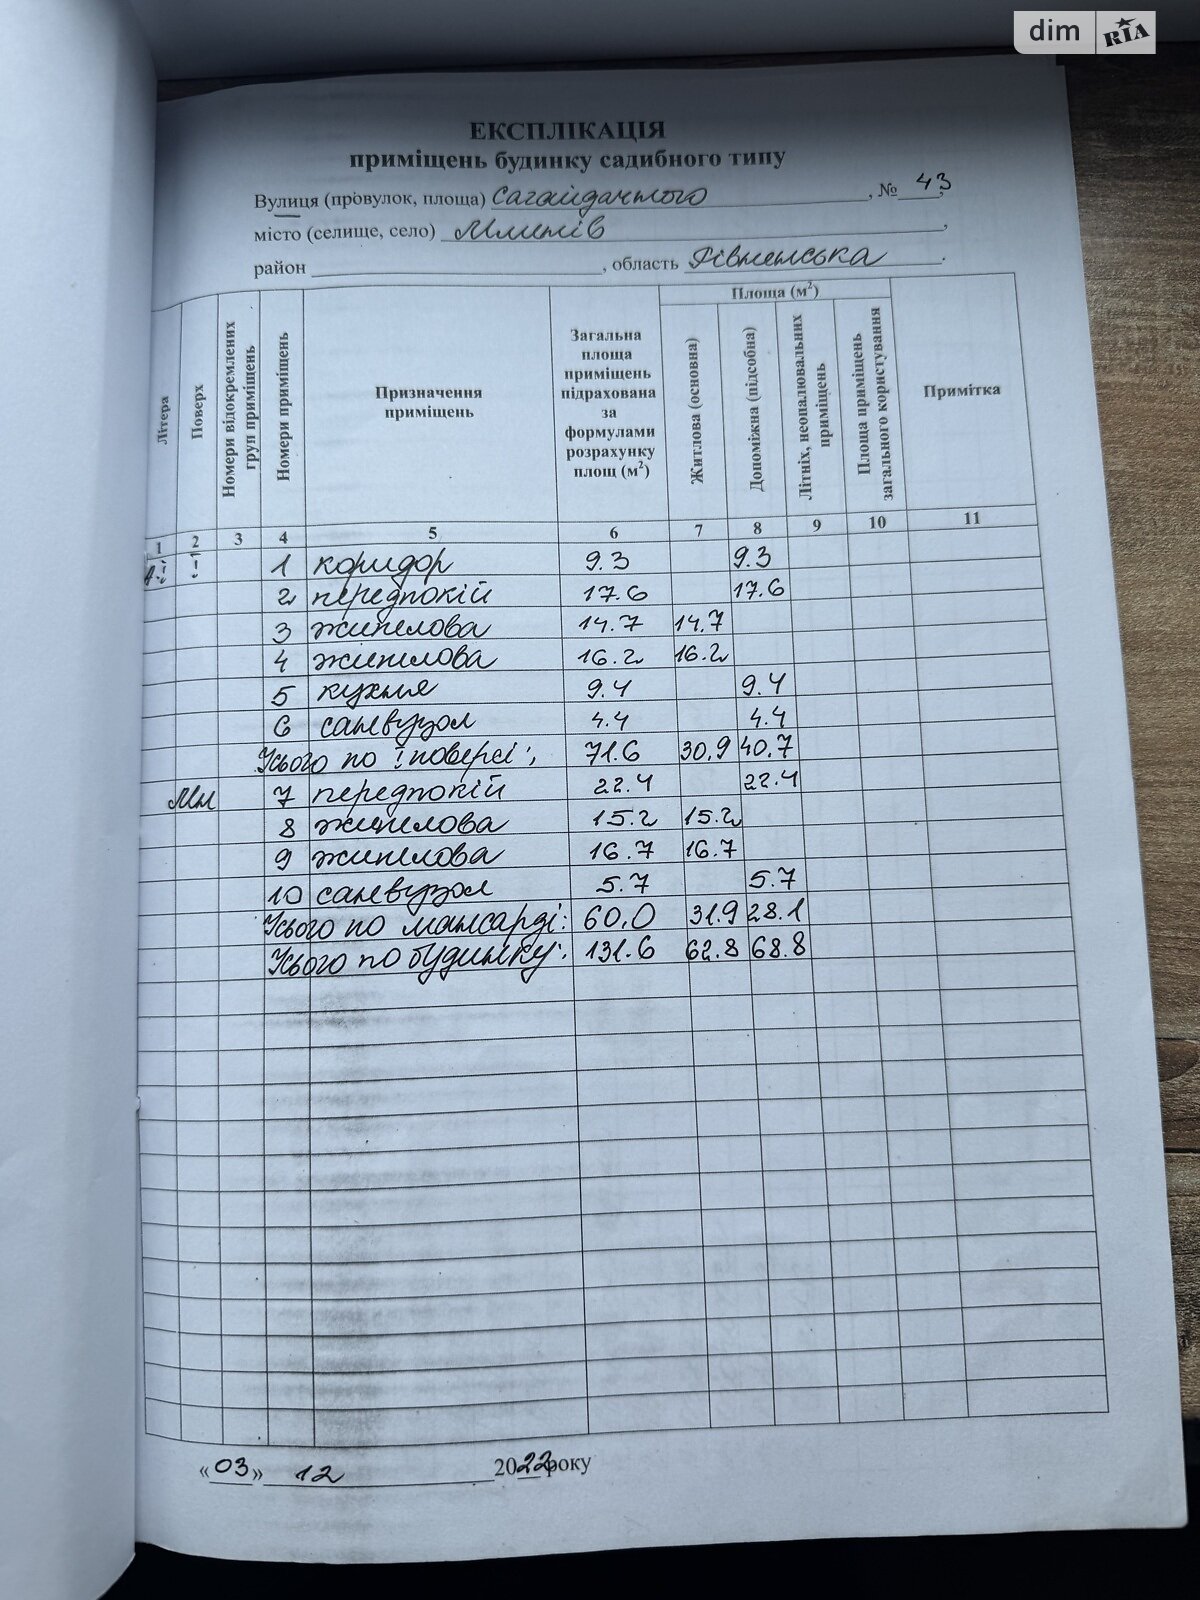 dim RIA
ЕКСПЛІКАЦІЯ
приміщень будинку садибного типу
Вулиця (провулок, площа) Сагайдачного, № 43,
місто (селище, село) Млинів,
район , область Рівненська.
Літера
Поверх
Номери відокремлених груп приміщень
Номери приміщень
Призначення приміщень
Загальна площа приміщень підрахована за формулами розрахунку площ (м²)
Площа (м²)
Житлова (основна)
Допоміжна (підсобна)
Літніх, неопалювальних приміщень
Площа приміщень загального користування
Примітка
1 2 3 4 5 6 7 8 9 10 11
1 коридор 9.3 9.3
2 передпокій 17.6 17.6
3 житлова 14.7 14.7
4 житлова 16.2 16.2
5 кухня 9.4 9.4
6 санвузол 4.4 4.4
Усього по І поверсі: 71.6 30.9 40.7
Мн 7 передпокій 22.4 22.4
8 житлова 15.2 15.2
9 житлова 16.7 16.7
10 санвузол 5.7 5.7
Усього по мансарді: 60.0 31.9 28.1
Усього по будинку: 131.6 62.8 68.8
«03» 12 2022 року